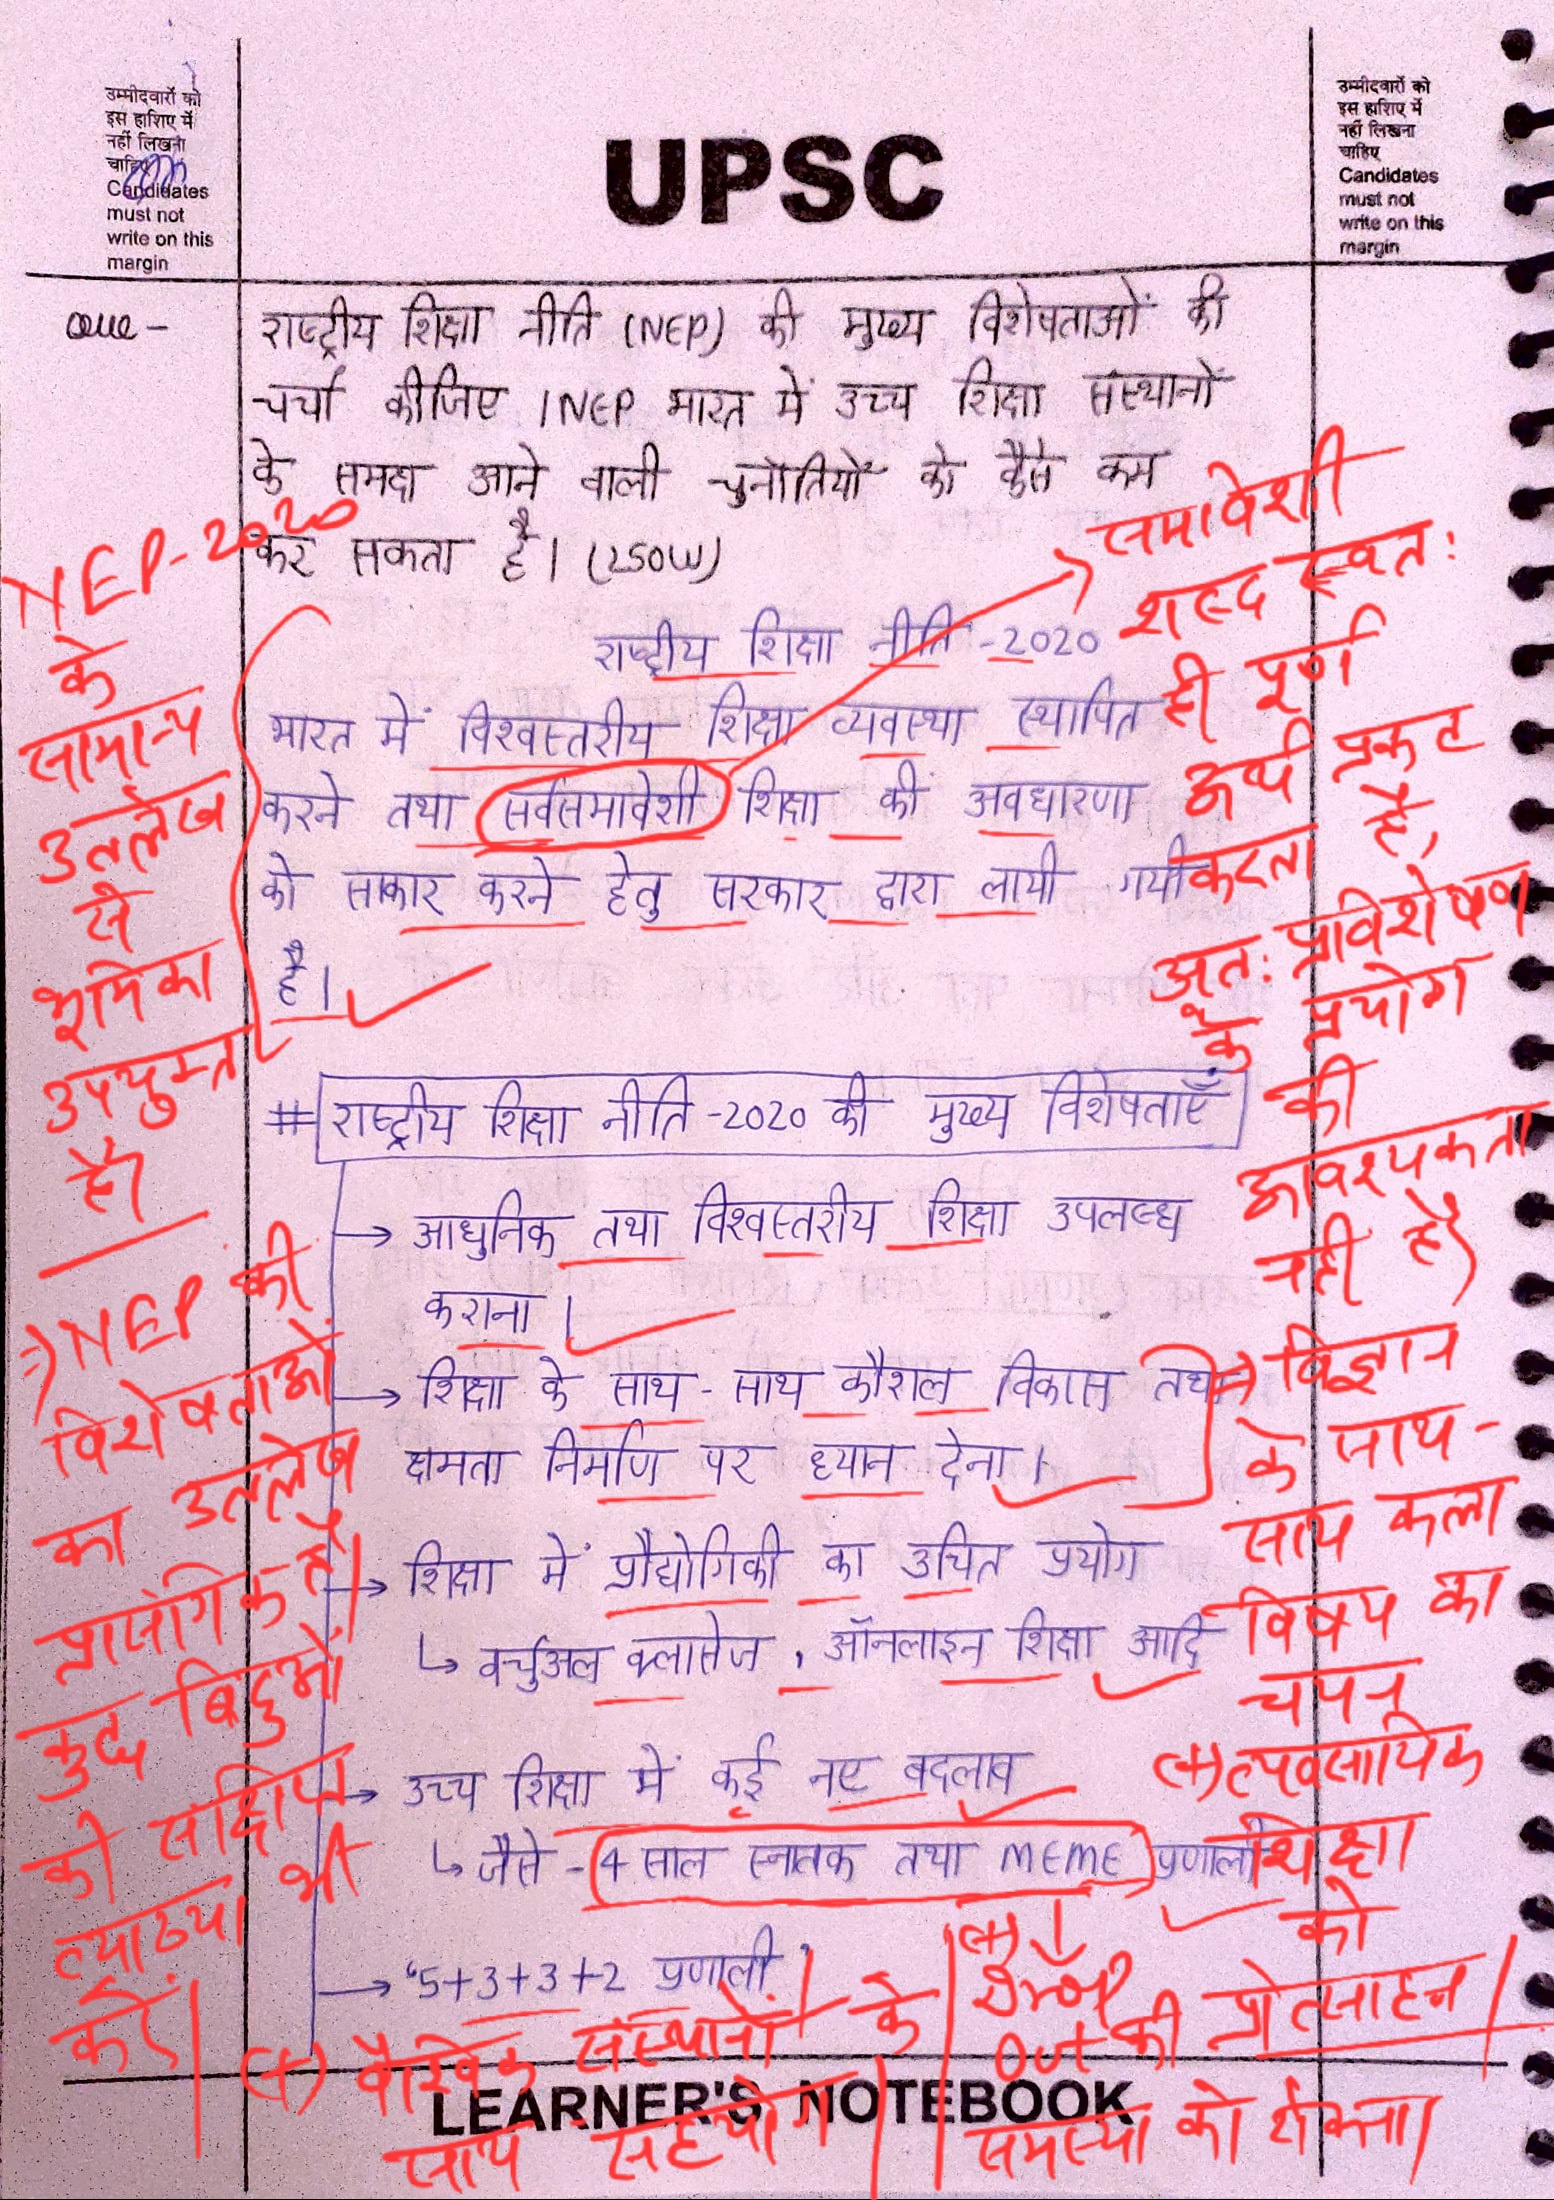 उम्मीदवारों को
इस हाशिए में
नहीं लिखना
चाहिए
Candidates
must not
write on this
margin
UPSC
उम्मीदवारों को
इस हाशिए में
नहीं लिखना
चाहिए
Candidates
must not
write on this
margin
Que -
राष्ट्रीय शिक्षा नीति (NEP) की मुख्य विशेषताओं की
चर्चा कीजिए । NEP भारत में उच्च शिक्षा संस्थानों
के समक्ष आने वाली चुनौतियों को कैसे कम
कर सकता है। (250W)
राष्ट्रीय शिक्षा नीति -2020
भारत में विश्वस्तरीय शिक्षा व्यवस्था स्थापित
करने तथा सर्वसमावेशी शिक्षा की अवधारणा
को साकार करने हेतु सरकार द्वारा लायी गयी
है।
NEP-2020
के
सामान्य
उल्लेख
से
भूमिका
उपयुक्त
है।
समावेशी
शब्द स्वतः
ही पूर्ण
अर्थ प्रकट
करता है,
अतः प्रविशेषण
के प्रयोग
की
आवश्यकता
नहीं है।
# राष्ट्रीय शिक्षा नीति -2020 की मुख्य विशेषताएँ
→ आधुनिक तथा विश्वस्तरीय शिक्षा उपलब्ध
कराना ।
→ शिक्षा के साथ - साथ कौशल विकास तथा
क्षमता निर्माण पर ध्यान देना ।
→ शिक्षा में प्रौद्योगिकी का उचित प्रयोग
↳ वर्चुअल क्लासेज , ऑनलाइन शिक्षा आदि
→ उच्च शिक्षा में कई नए बदलाव
↳ जैसे - 4 साल स्नातक तथा MEME प्रणाली
→ '5+3+3+2 प्रणाली'
⇒) NEP की
विशेषताओं
का उल्लेख
प्रासंगिक है।
कुछ बिंदुओं
की संक्षिप्त
व्याख्या भी
करें।
→ विज्ञान
के साथ -
साथ कला
विषय का
चयन
(+) व्यवसायिक
शिक्षा
को
प्रोत्साहन।
(+) वैश्विक संस्थानों के
साथ सहयोग।
(+) ↓
Drop
Out की
समस्या को रोकना।
LEARNER'S NOTEBOOK